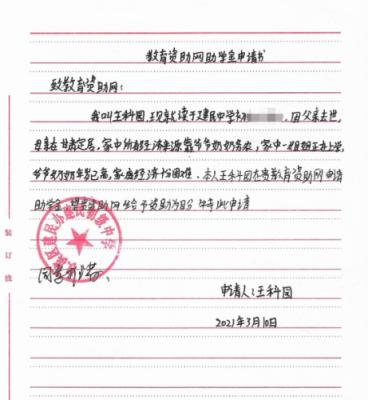 教育资助网助学金申请书
致教育资助网:
我叫王科园,现就读于建民中学初 因父亲去世,
母亲在甘肃定居,家中所有经济来源靠爷爷奶奶务农,家中一姐姐正在上学,
爷爷奶奶年岁已高,家庭经济十分困难。本人王科园在贵教育资助网申请
助学金,望 资助网给予资助为盼 特此申请
民办建民初级中学
同意
申请人:王科园
2021年3月10日
装订线